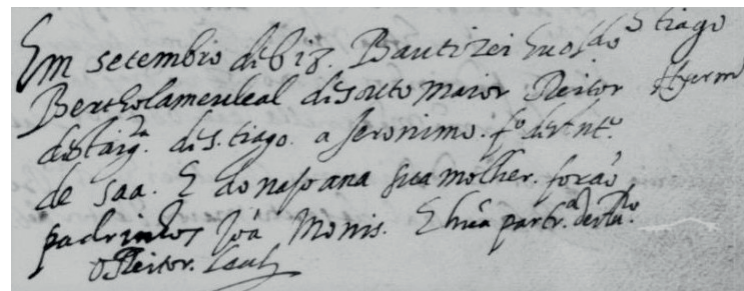 Em setembro de 613. Bautizei eu o ldo S tiago
Bertholameu leal de souto maior Reitor Hyerm
desta igra. de S. tiago. a Jeronimo. fo de Anto.
de Saa. E dona Joana sua molher. forão
padrinhos Joã Monis. E huã partra.
O Reitor. Leal